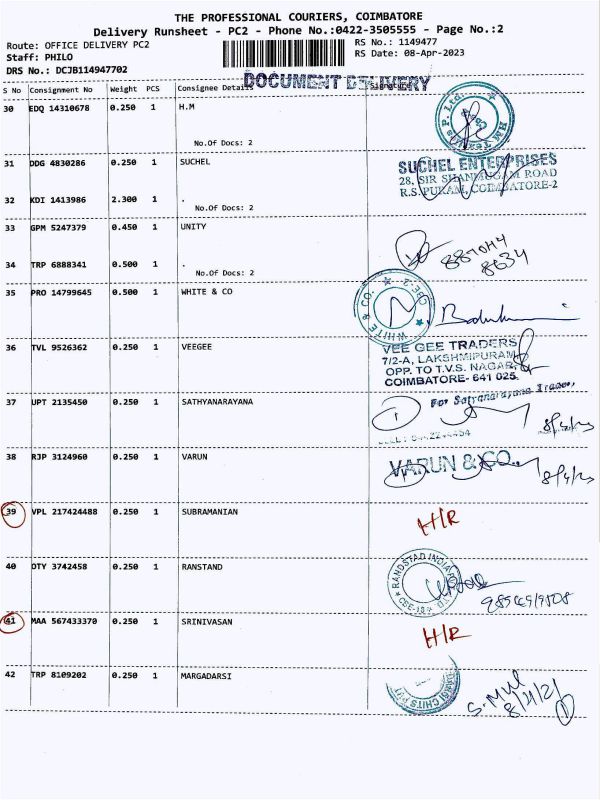 THE PROFESSIONAL COURIERS, COIMBATORE
Delivery Runsheet - PC2 - Phone No.:0422-3505555 - Page No.:2
Route: OFFICE DELIVERY PC2
Staff: PHILO
DRS No.: DCJB114947702
RS No.: 1149477
RS Date: 08-Apr-2023
DOCUMENT DELIVERY
S No Consignment No Weight PCS Consignee Details Signature
30 EDQ 14310678 0.250 1 H.M
No.Of Docs: 2
31 DDG 4830286 0.250 1 SUCHEL
SUCHEL ENTERPRISES
28, SIR SHANMUGAM ROAD
R.S. PURAM, COIMBATORE-2
32 KDI 1413986 2.300 1 .
No.Of Docs: 2
33 GPM 5247379 0.450 1 UNITY
8634
34 TRP 6888341 0.500 1 .
No.Of Docs: 2
35 PRO 14799645 0.500 1 WHITE & CO
WHITE & CO. CBE-2
36 TVL 9526362 0.250 1 VEEGEE
VEE GEE TRADERS
7/2-A, LAKSHMIPURAM
OPP. TO T.V.S. NAGAR,
COIMBATORE- 641 025.
37 UPT 2135450 0.250 1 SATHYANARAYANA
For Satyanarayana
1
38 RJP 3124960 0.250 1 VARUN
VARUN & CO.
39 VPL 217424488 0.250 1 SUBRAMANIAN
H/R
40 OTY 3742458 0.250 1 RANSTAND
RANDSTAD INDIA
41 MAA 567433370 0.250 1 SRINIVASAN
H/R
42 TRP 8109202 0.250 1 MARGADARSI
CHITS
1